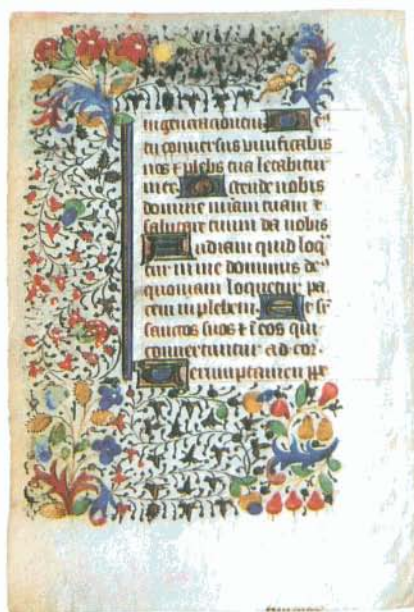 in generationem e⁹
tu conversus vivificabis
nos ⁊ plebs tua letabitur
in te. stende nobis
domine miam tuam ⁊
salutare tuum da nobis
udiam quid loq
tur in me dominus de⁹
quoniam loquetur pa
cem in plebem. t sr̄
sanctos suos ⁊ ī eos qui
convertuntur ad cor.
erumptamen pr